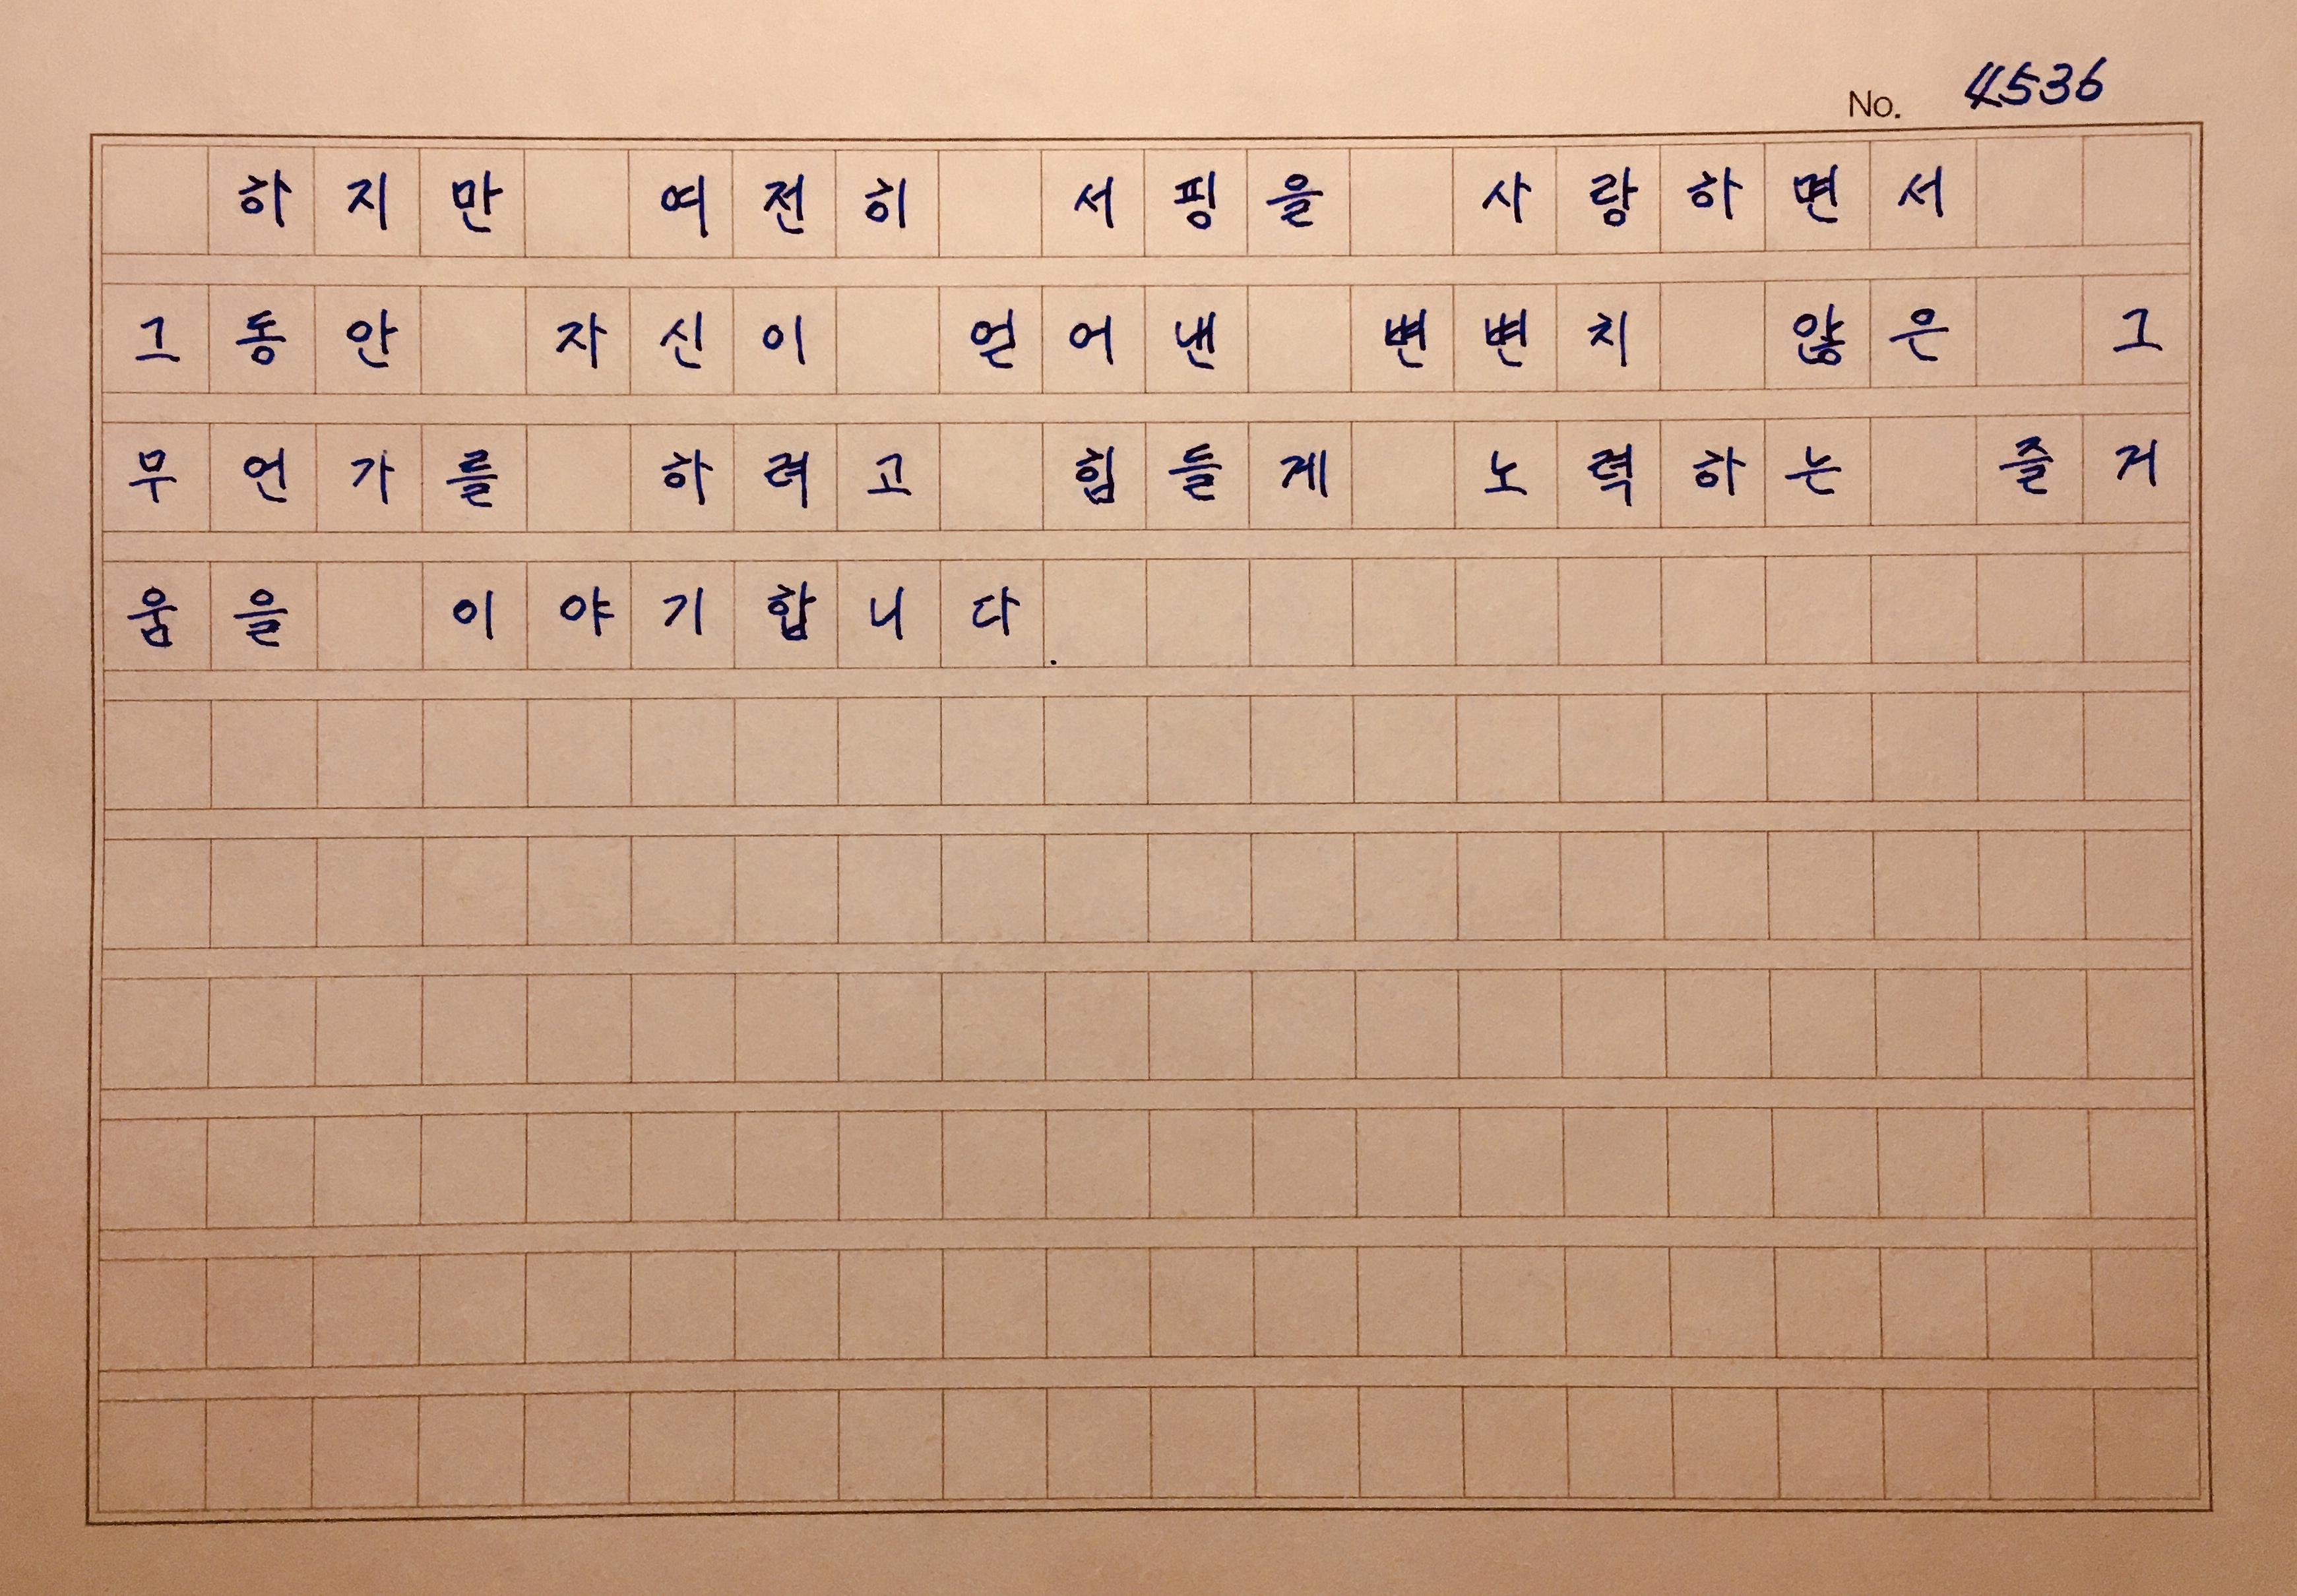 No. 4536
하지만 여전히 서핑을 사랑하면서
그동안 자신이 얻어낸 변변치 않은 그
무언가를 하려고 힘들게 노력하는 즐거
움을 이야기합니다.